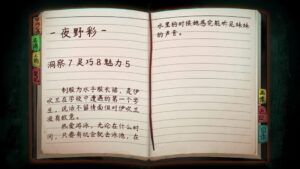 -夜野彩-
洞察7 灵巧8 魅力5
制服为水手服长裙，是伊
吹兰在学校中遭遇的第一个学
生，说话不留情面但对伊吹兰
没有敌意。
热爱游泳，无论在什么时
间，只要有机会就会去泳池，在
水里的时候她感觉能听见妹妹
的声音。